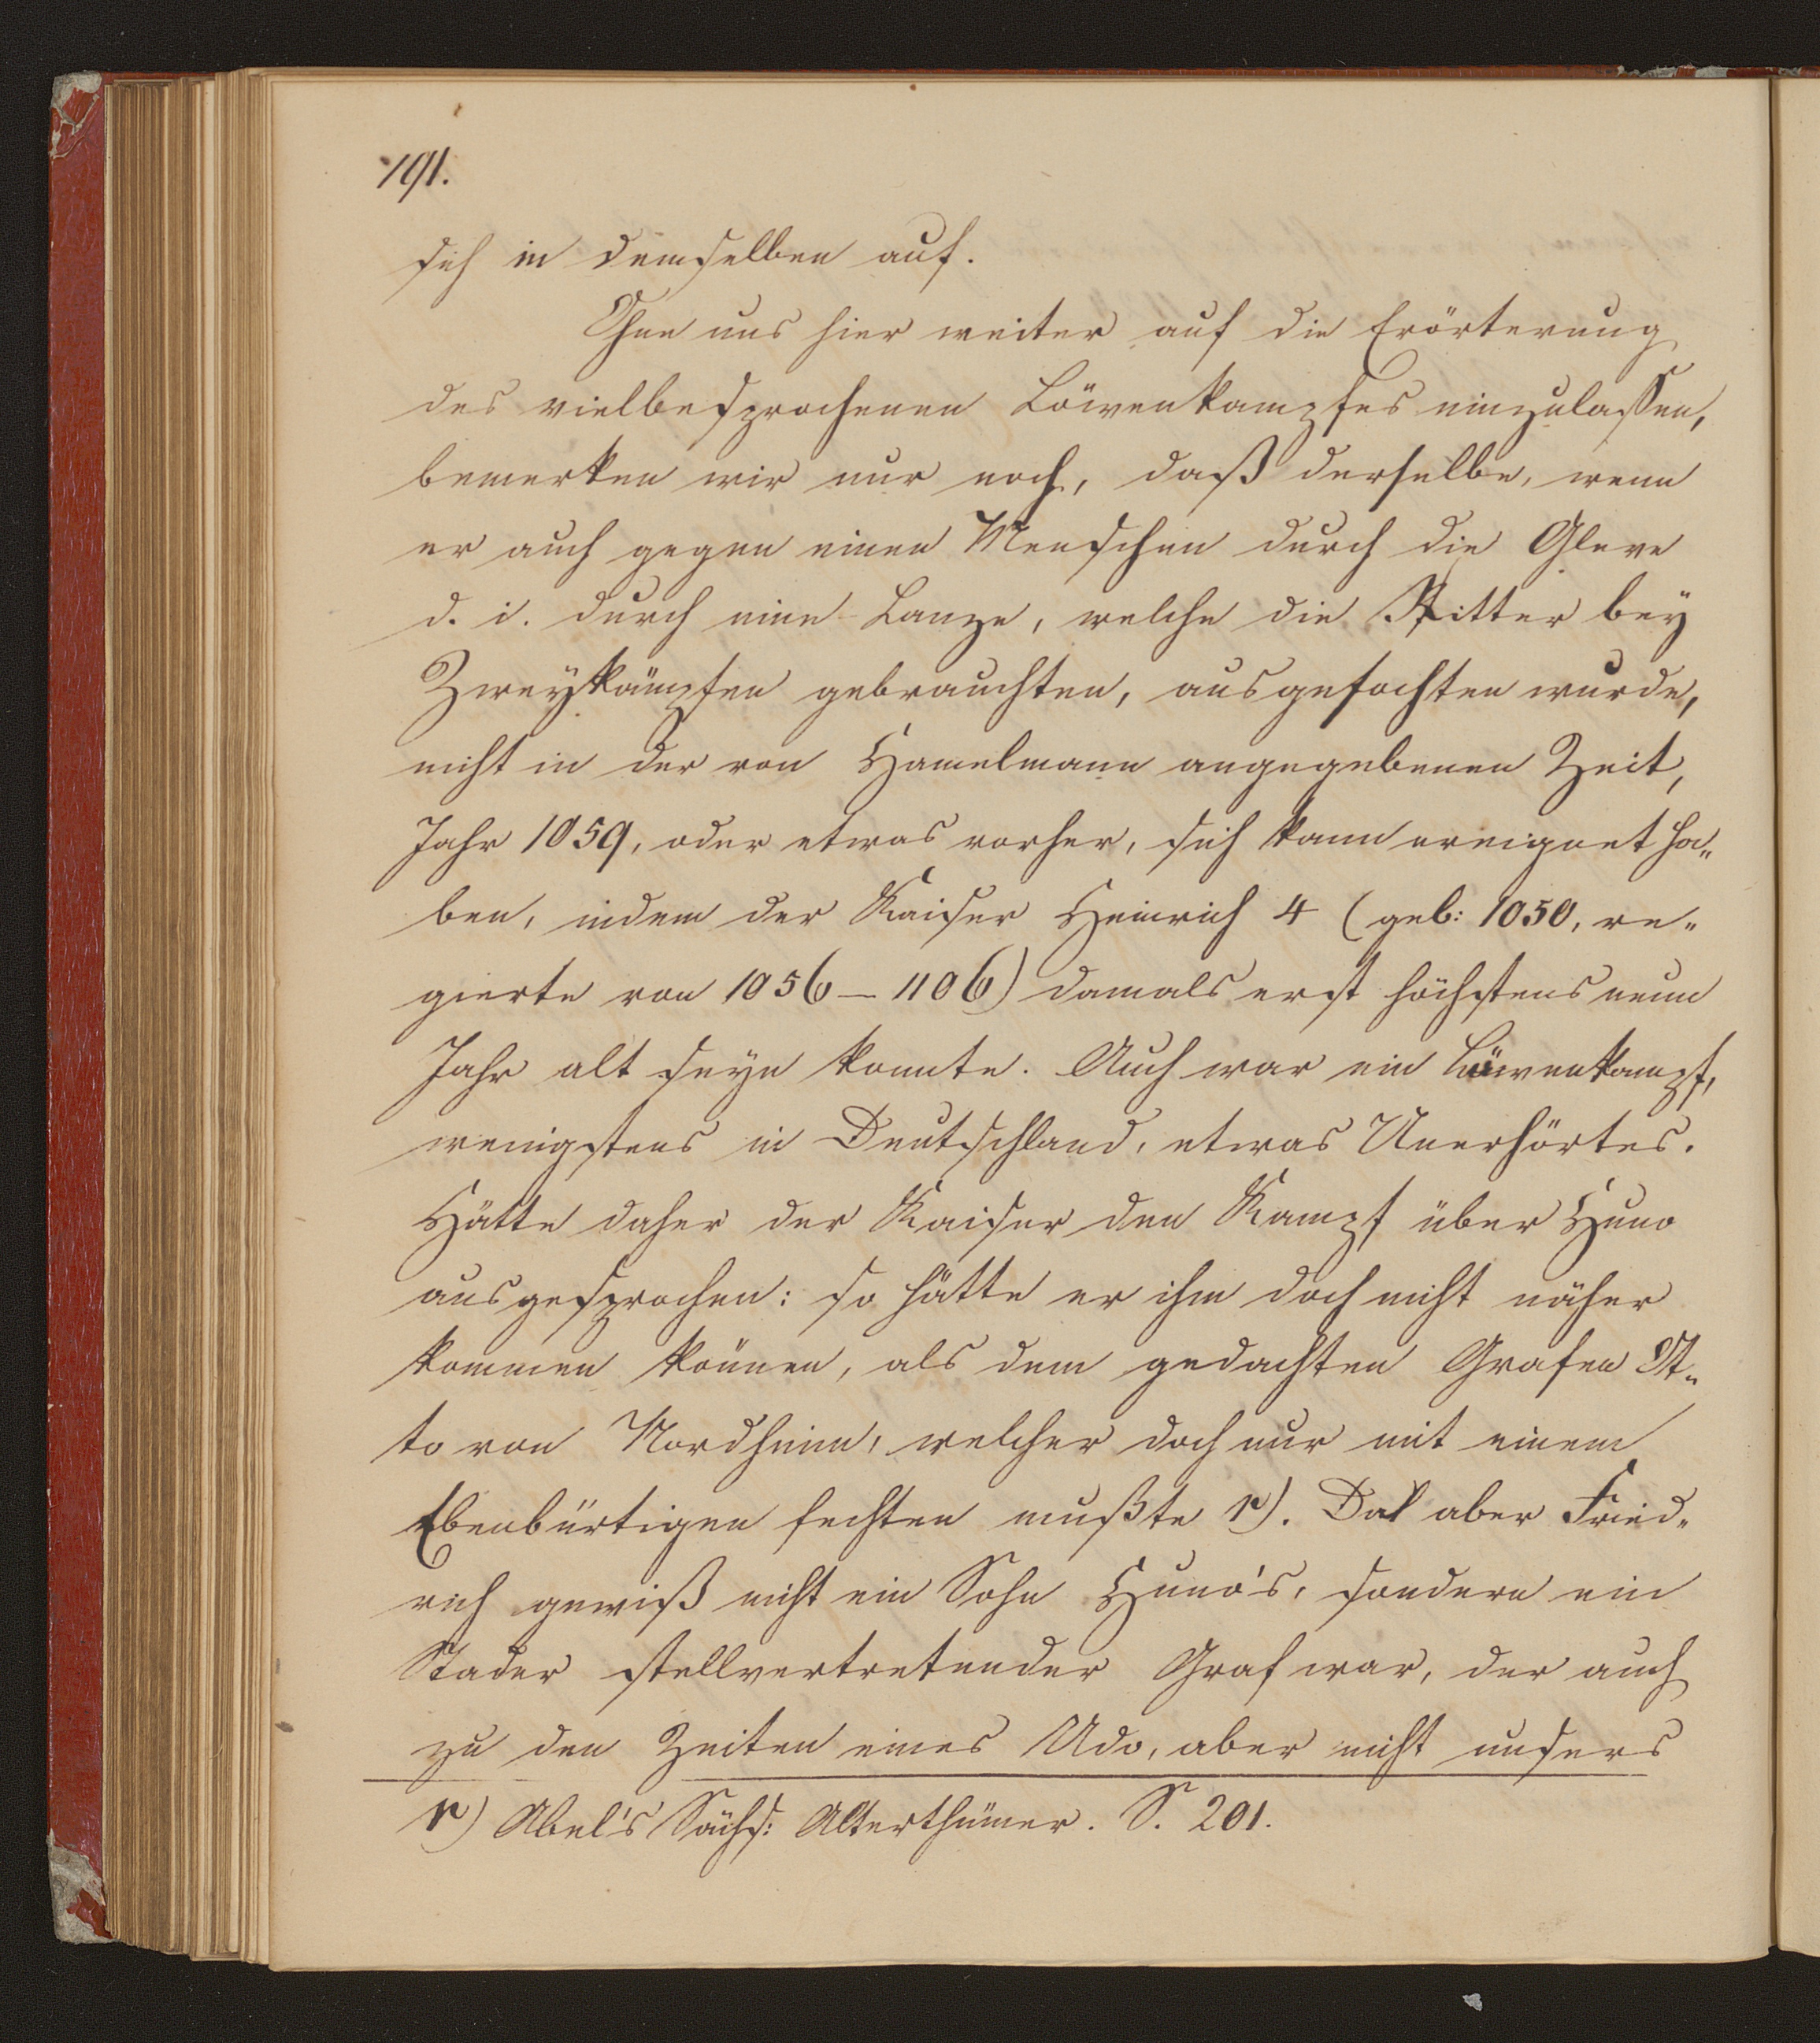 191.
sich in demselben auf.
Ohne uns hier weiter auf die Erörterung
des vielbesprochenen Löwenkampfes einzulassen,
bemerken wir nur noch, daß derselbe, wenn
er auch gegen einen Menschen durch die Gleve
d. i. durch eine Lanze, welche die Ritter bey
Zweykämpfen gebrauchten, ausgefochten wurde,
nicht in der von Hamelmann angegebenen Zeit,
Jahr 1059, oder etwas vorher, sich kann ereignet ha„
ben, indem der Kaiser Heinrich 4 (geb: 1050, re„
gierte von 1056 – 1106) damals erst höchstens neun
Jahr alt seyn konnte. Auch war ein Löwenkampf,
wenigstens in Deutschland, etwas Unerhörtes.
Hätte daher der Kaiser den Kampf über Huno
ausgesprochen: so hätte er ihm doch nicht näher
kommen können, als dem gedachten Grafen Ot„
to von Nordheim, welcher doch nur mit einem
Ebenbürtigen fechten mußte r). Daß aber Fried„
rich gewiß nicht ein Sohn Huno's, sondern ein
Stader stellvertretender Graf war, der auch
zu den Zeiten eines Udo, aber nicht unsers
r) Abel's Sächs: Alterthümer. S. 201.